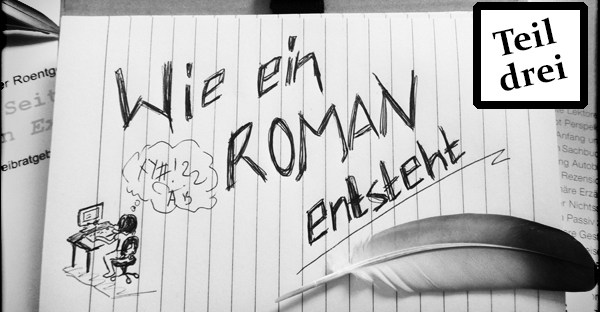 Teil
drei
Wie ein
ROMAN
entsteht
er Roentg
Seit
n Ex
eibratgeb
XY#!??
Perspe
Anfang un
Sachbu
ng Autob
Rezens
äre Erzä
r Nichts
Passiv
re Ges